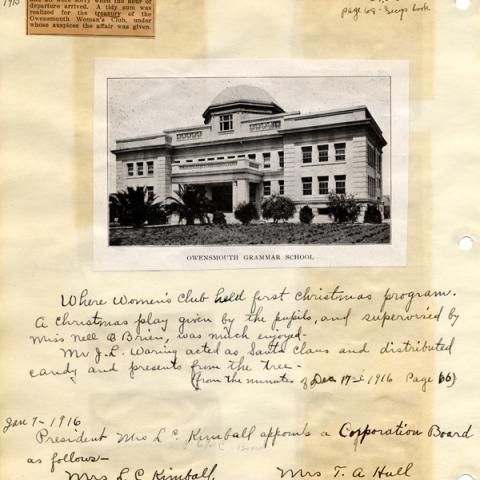 1915
and all were sorry when the hour of
departure arrived. A tidy sum was
realized for the treasury of the
Owensmouth Woman's Club, under
whose auspices the affair was given.
page 68 - Scrap book
OWENSMOUTH GRAMMAR SCHOOL
Where Women's Club held first Christmas program.
A Christmas play given by the pupils, and supervised by
Miss Nell B Brien, was much enjoyed-
Mr J. L. Waring acted as Santa Claus and distributed
candy and presents from the tree-
(from the minutes of Dec 17- 1916 Page 66)
Jan 7- 1916
President Mrs L C Kimball appoints a Corporation Board
as follows-
Mrs L C Kimball, Mrs T. A Hull